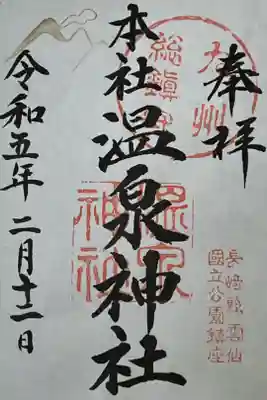 奉拝
九州
総鎮守
本社温泉神社
温泉
神社
長崎県雲仙
國立公園鎮座
令和五年二月十二日